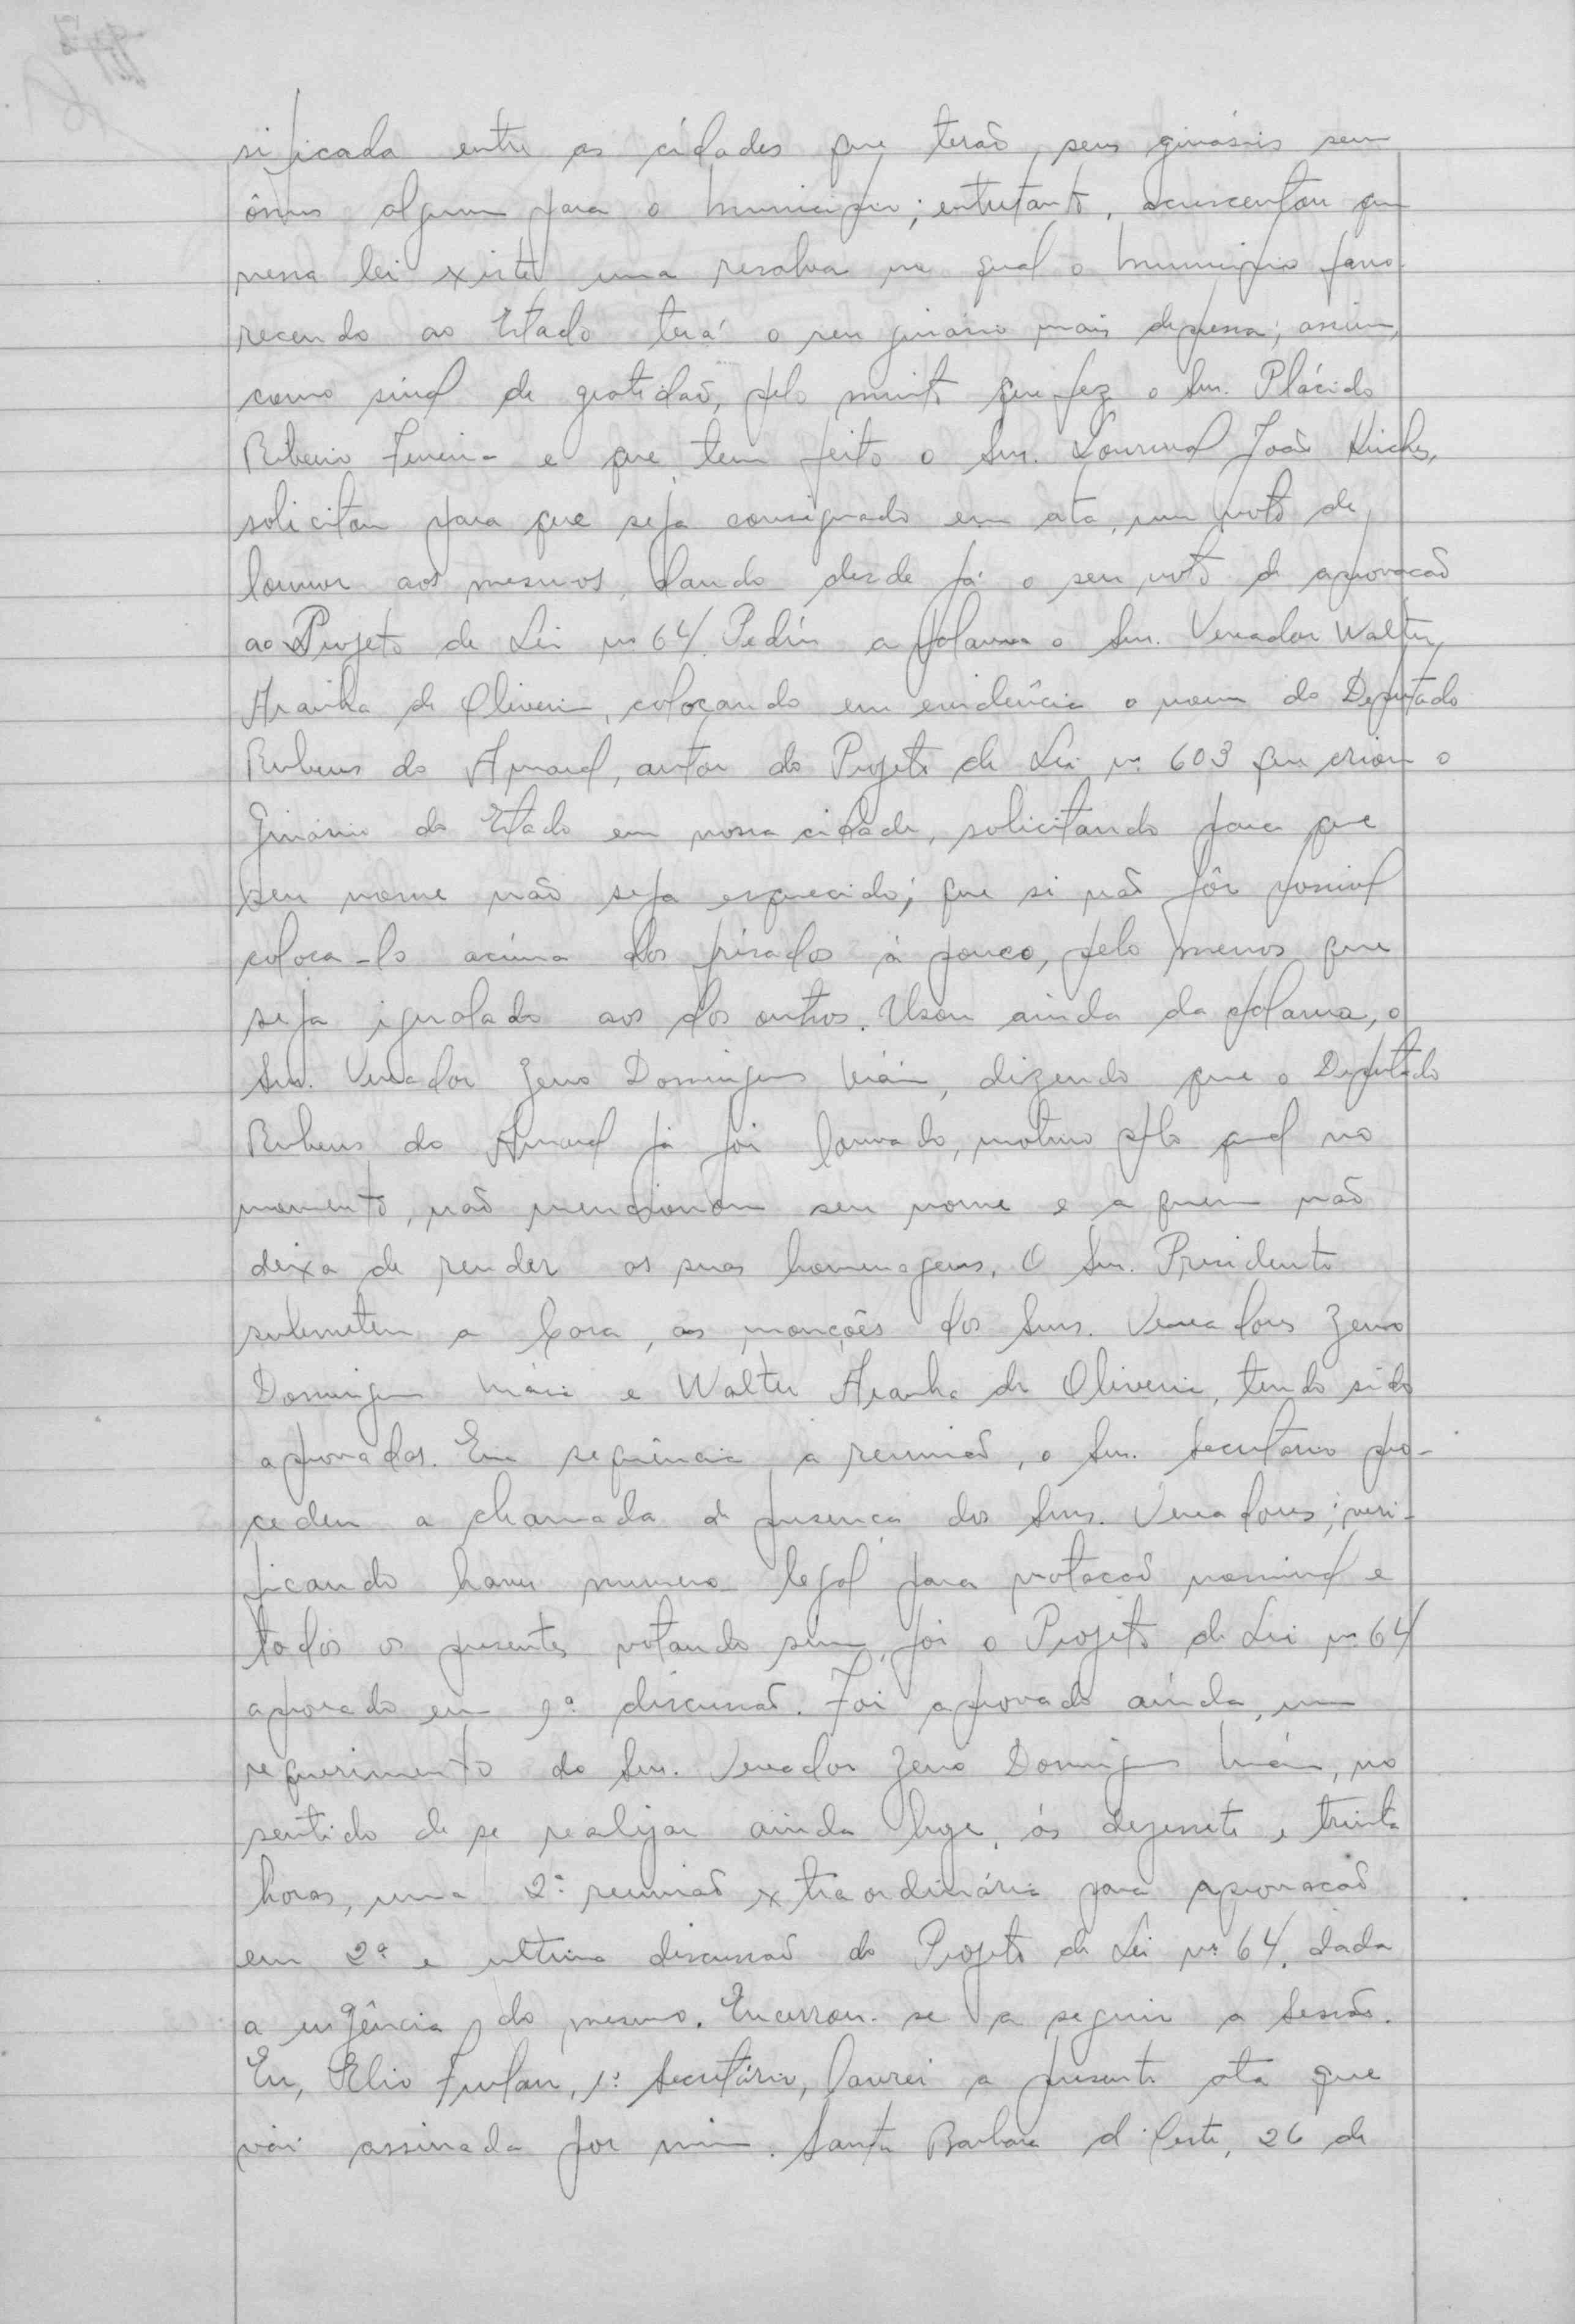 sificada entre as cidades que terão, seus ginásios sem
ônus algum para o município; entretanto, acrescentou que
nessa lei existe uma resalva na qual o município favo-
recendo ao Estado terá o seu ginásio mais depressa; assim,
como sinal de gratidão, pelo muito que fez o Snr. Plácido
Ribeiro Ferreira e que tem feito o Snr. Lourival João
solicitou para que seja consignado em ata, um voto de
louvor aos mesmos, dando desde já o seu voto de aprovação
ao Projeto de Lei nº 64. Pediu a palavra o Snr. Vereador Walter
Aranha de Oliveira, colocando em evidência o nome do Deputado
Rubens do Amaral, autor do Projeto de Lei nº 603 que criou o
Ginásio do Estado em nossa cidade, solicitando para que
seu nome não seja esquecido; que si não fôr possivel
coloca-lo acima dos frisados á pouco, pelo menos que
seja igualado aos dos outros. Usou ainda da palavra, o
Snr. Vereador Zeno Domingues Maia, dizendo que o Deputado
Rubens do Amaral já foi louvado, motivo pelo qual no
momento, não mencionou seu nome e a quem não
deixa de render as suas homenagens. O Snr. Presidente
submeteu a Casa, as monções dos Snrs. Vereadores Zeno
Domingues Maia e Walter Aranha de Oliveira, tendo sido
aprovadas. Em sequência a reunião, o Snr. Secretario pro-
cedeu a chamada de presença dos Snrs. Vereadores; veri-
ficando haver numero legal para votação nominal e
todos os presentes votando sim, foi o Projeto de Lei nº 64
aprovado em 1ª discussão. Foi aprovado ainda, um
requerimento do Snr. Vereador Zeno Domingues Maia, no
sentido de se realizar ainda hoje, ás dezessete e trinta
horas, uma 2ª reunião extraordinária para aprovação
em 2ª e ultima discussão do Projeto de Lei nº 64, dada
a urgência do mesmo. Encerrou-se a seguir a Sessão.
Eu, Elio Furlan, 1º Secretário, lavrei a presente ata que
vai assinada por mim. Santa Barbara d'Oeste, 26 de